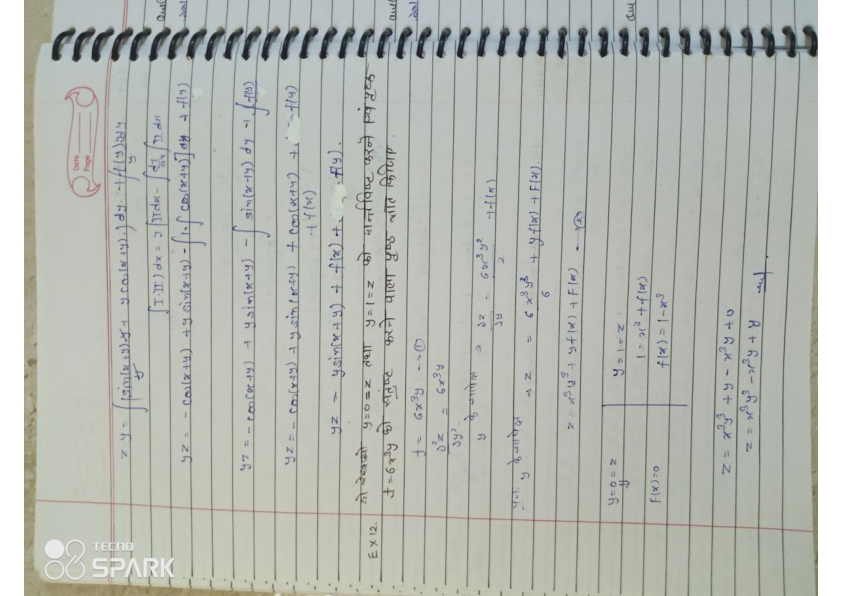 Date
Page
zy = ∫[sin(x+y) + y cos(x+y)] dy + ∫f(y) dy
∫(I·II) dx = I∫II dx - ∫ dI/dx ∫II dx
yz = -cos(x+y) + y sin(x+y) - ∫1·∫cos(x+y)] dy + f(y)
yz = -cos(x+y) + y sin(x+y) - ∫sin(x+y) dy + ∫f(y)
yz = -cos(x+y) + y sin(x+y) + cos(x+y) + f(y)
+ f(x)
yz = y sin(x+y) + f(x) + f(y).
Ex 12. दो रेखाओं y=0=z तथा y=1=z को करने पृष्ठ
t = 6x³y को संतुष्ट करने वाला पृष्ठ ज्ञात किजिए.
t = 6x³y —①
∂²z/∂y² = 6x³y
y के सापेक्ष ⇒ ∂z/∂y = 6x³y²/2 + f(x)
पुनः y के सापेक्ष ⇒ z = 6x³y³/6 + y f(x) + F(x).
z = x³y³ + y f(x) + F(x) —②
y=0=z
y=1=z
1 = x³ + f(x)
F(x)=0
f(x) = 1-x³
z = x³y³ + y - x³y + 0
z = x³y³ - x³y + y
TECNO
SPARK